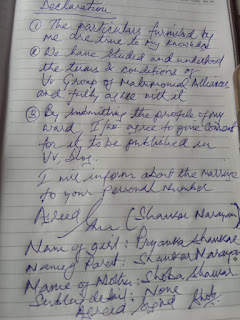 Declaration
① The particulars furnished by
me are true to my knowledge
② We have studied and understood
the terms & conditions of
Vv Group of Matrimonial Alliances
and fully agree with it
③ By submitting the profile of my
ward, I/we agree to give consent
for it to be published in
Vv, blog.
I will inform about the marriage
to your personal number
Agreed
(Shankar Narayan)
Name of girl: Priyanka Shankar
Name of Parent: Shankar Narayan
Name of Mother: Shoba Shankar
Sibling detail: None
Agreed